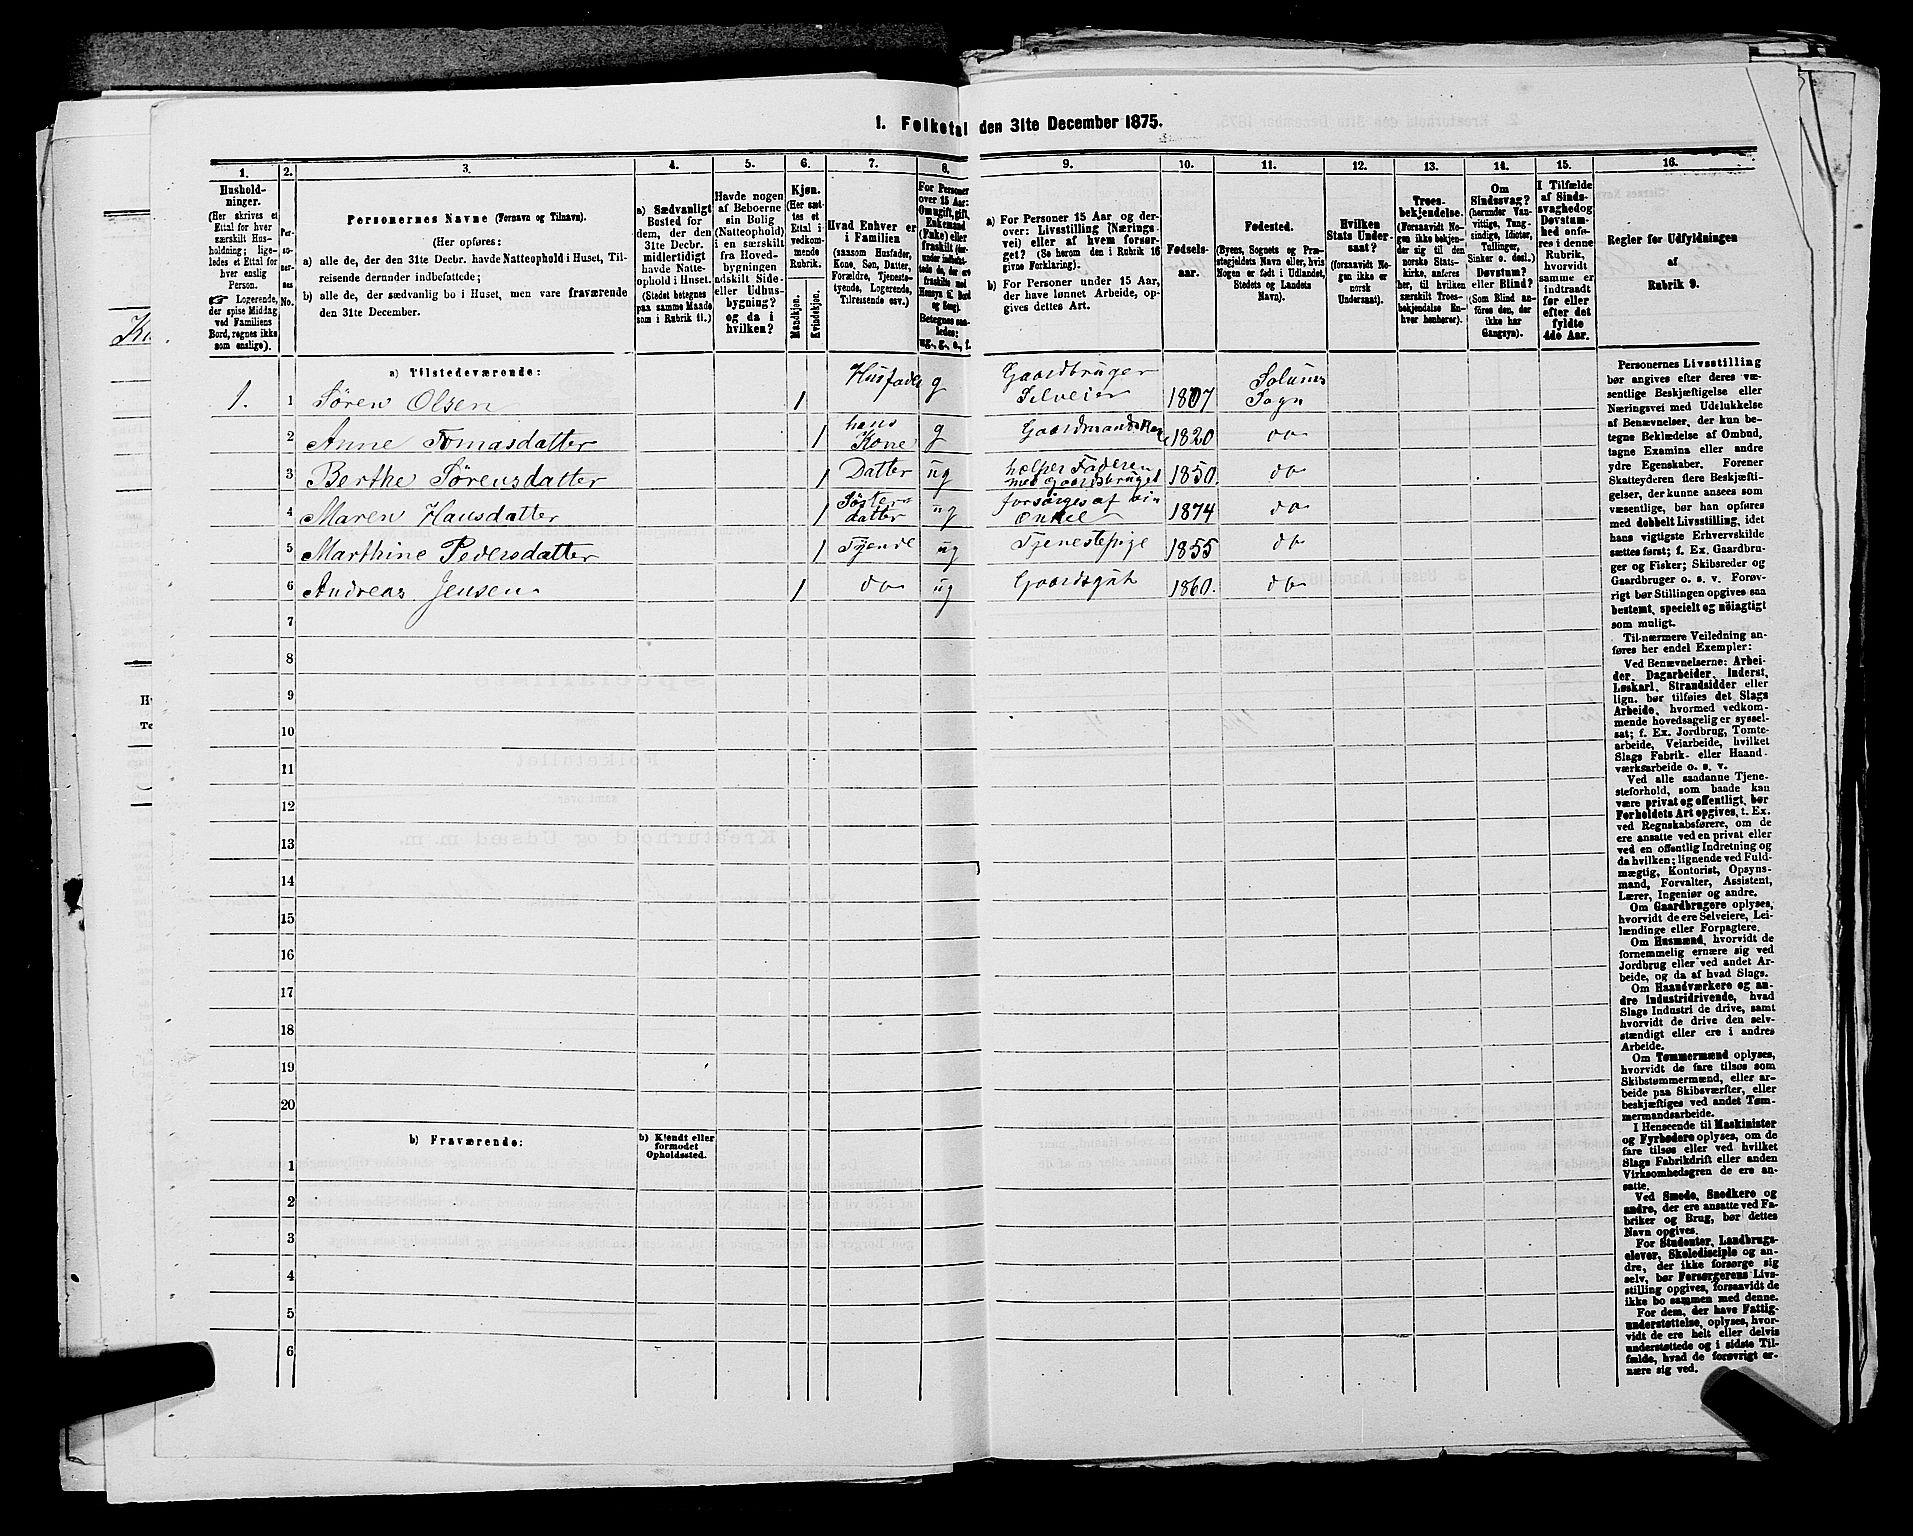 1. Folketal den 31te December 1875.
1.
Hushold-
ninger.
(Her skrives et
Ettal for hver
særskilt Hus-
holdning; lige-
ledes et Ettal for
hver enslig
Person.
☞ Logerende,
der spise Middag
ved Familiens
Bord, regnes ikke
som enslige).
2.
No.
3.
Personernes Navne (Fornavn og Tilnavn).
(Her opføres:
a) alle de, der den 31te Decbr. havde Natteophold i Huset, Til-
reisende derunder indbefattede;
b) alle de, der sædvanlig bo i Huset, men vare fraværende
den 31te December.
4.
a) Sædvanligt
Bosted for
dem, der den
31te Decbr.
midlertidigt
havde Natte-
ophold i Huset.
(Stedet betegnes
paa samme Maade
som i Rubrik 11.)
5.
Havde nogen
af Beboerne
sin Bolig
(Natteophold)
i en særskilt
fra Hoved-
bygningen
adskilt Side-
eller Udhus-
bygning?
og da i
hvilken?
6.
Kjøn.
(Her sæt-
tes et
Ettal i
vedkom-
mende
Rubrik.
Mandkjøn.
Kvindekjøn.
7.
Hvad Enhver er
i Familien
(saasom Husfader,
Kone, Søn, Datter,
Forældre, Tjeneste-
tyende, Logerende,
Tilreisende osv.)
8.
For Personer
over 15 Aar:
Om ugift, gift,
Enkemand
(Enke) eller
fraskilt
Betegnes saa-
ledes:
ug., g., e., f.
9.
a) For Personer 15 Aar og der-
over: Livsstilling (Nærings-
vei) eller af hvem forsør-
get? (Se herom den i Rubrik 16
givne Forklaring).
b) For Personer under 15 Aar,
der have lønnet Arbeide, op-
gives dettes Art.
10.
Fødsels-
aar.
11.
Fødested.
(Byens, Sognets og Præ-
stegjeldets Navn eller, hvis
Nogen er født i Udlandet,
Stedets og Landets
Navn).
12.
Hvilken
Stats Under-
saat?
(forsaavidt No-
gen ikke er
norsk
Undersaat).
13.
Troes-
bekjendelse.
(Forsaavidt No-
gen ikke bekjen-
der sig til den
norske Stats-
kirke, anføres
her, til hvilken
særskilt Troes-
bekjendelse En-
hver henhører).
14.
Om
Sindssvag?
(herunder Van-
vittige, Tung-
sindige, Idioter,
Tullinger,
Sinker o. desl.)
Døvstum?
eller Blind?
(Som Blind an-
føres den, der
ikke har
Gangsyn).
15.
I Tilfælde
af Sinds-
svaghed og
Døvstum-
hed anfø-
res i denne
Rubrik,
hvorvidt
samme er
indtraadt
før eller
efter det
fyldte
4de Aar.
16.
Regler for Udfyldningen
af
Rubrik 9.
a) Tilstedeværende:
1. 1 Søren Olsen 1 Husfader g Gaardbruger Selveier 1807 Solums Sogn
2 Anne Tomasdatter 1 hans Kone g 1820 do
3 Berthe Sørensdatter 1 Datter ug helper Faderen med Gaardsbruget 1850. do
4 Maren Hansdatter 1 Søster datter ug forsørges af sin Onkel 1874 do
5 Marthine Pedersdatter 1 Tjende ug Tjenestepige 1855 do
6 Andreas Jensen 1 do ug Gaardsgut 1860. do
7
8
9
10
11
12
13
14
15
16
17
18
19
20
b) Fraværende:
b) Kjendt eller
formodet
Opholdssted.
1
2
3
4
5
6
Personernes Livsstilling
bør angives efter deres væ-
sentlige Beskjæftigelse eller
Næringsvei med Udelukkelse
af Benævnelser, der kun be-
tegne Beklædelse af Ombud,
tagne Examina eller andre
ydre Egenskaber. Forener
Skatteyderen flere Beskjæfti-
gelser, der kunne ansees som
væsentlige, bør han opføres
med dobbelt Livsstilling, idet
hans vigtigste Erhvervskilde
sættes først; f. Ex. Gaardbru-
ger og Fisker; Skibsreder og
Gaardbruger o. s. v. Forøv-
rigt bør Stillingen opgives saa
bestemt, specielt og nøiagtigt
som muligt.
Til nærmere Veiledning an-
føres her endel Exempler:
Ved Benævnelserne: Arbei-
der, Dagarbeider, Inderst,
Løskarl, Strandsidder eller
lign. bør tilføies det Slags
Arbeide, hvormed vedkom-
mende hovedsagelig er syssel-
sat; f. Ex. Jordbrug, Tomte-
arbeide, Veiarbeide, hvilket
Slags Fabrik- eller Haand-
værksarbeide o. s. v.
Ved alle saadanne Tjene-
steforhold, som baade kan
være privat og offentligt, bør
Forholdets Art opgives, t. Ex.
ved Regnskabsførere, om de
ere ansatte ved en privat eller
ved en offentlig Indretning og
da hvilken; lignende ved Fuld-
mægtig, Kontorist, Opsyns-
mand, Forvalter, Assistent,
Lærer, Ingeniør og andre.
Om Gaardbrugere oplyses,
hvorvidt de ere Selveiere, Lei-
lændinge eller Forpagtere.
Om Husmænd, hvorvidt de
fornemmelig ernære sig ved
Jordbrug eller ved andet Ar-
beide, og da af hvad Slags.
Om Haandværkere og an-
dre Industridrivende, hvad
Slags Industri de drive, samt
hvorvidt de drive den selv-
stændigt eller ere i andres
Arbeide.
Om Tømmermænd oplyses,
hvorvidt de fare tilsøs som
Skibstømmermænd, eller ar-
beide paa Skibsværfter, eller
beskjæftiges ved andet Tøm-
mermandsarbeide.
I Henseende til Maskinister
og Fyrbødere oplyses, om de
fare tilsøs eller ved hvilket
Slags Fabrikdrift eller anden
Virksomhedsgren de ere an-
satte.
Ved Smede, Snedkere og
andre, der ere ansatte ved Fa-
briker og Brug, bør dettes
Navn opgives.
For Studenter, Landbrugs-
elever, Skoledisciple og an-
dre, der ikke forsørge sig
selv, bør Forsørgerens Livs-
stilling opgives, forsaavidt de
ikke bo sammen med denne.
For dem, der have Fattig-
understøttelse, oplyses, hvor-
vidt de ere helt eller delvis
understøttede og i sidste Til-
fælde, hvad de forøvrigt er-
nære sig ved.